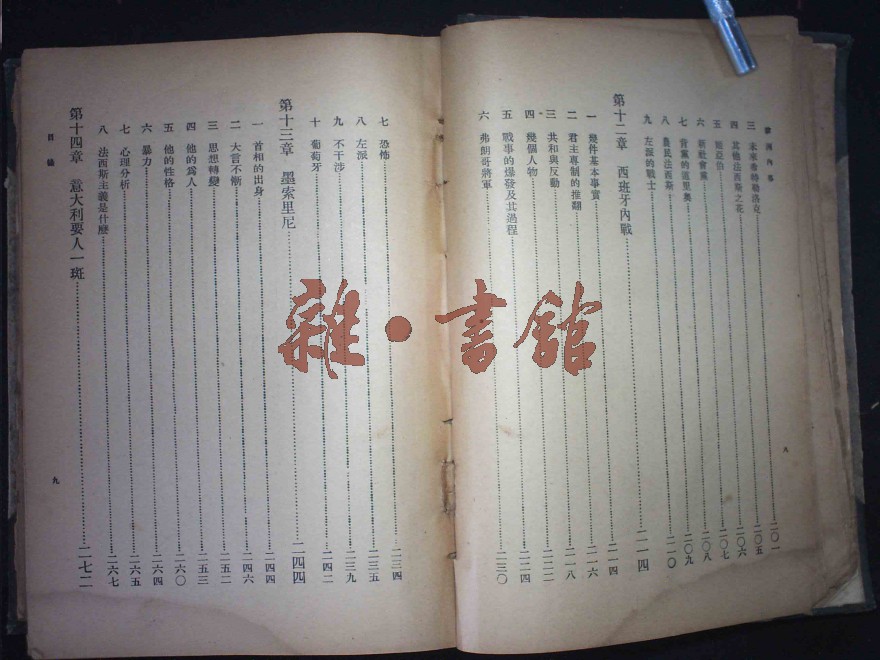 歐洲內幕
三 未來希特勒洛克……二〇一
四 其他法西斯之花……二〇五
五 ……二〇六
六 新社會黨……二〇七
七 青黨的道里奧……二〇八
八 農民法西斯……二〇九
九 左派的戰士……二一〇
第十二章 西班牙內戰……二一四
一 幾件基本事實……二一四
二 君主專制的推翻……二一六
三 共和與反動……二一八
四 幾個人物……二二二
五 戰事的爆發及其過程……二二四
六 弗朗哥將軍……二三〇
八
七 恐怖……二三四
八 左派……二三五
九 不干涉……二三九
十 葡萄牙……二四二
第十三章 墨索里尼……二四四
一 首相的出身……二四四
二 大言不慚……二四六
三 思想轉變……二五二
四 他的為人……二五三
五 他的性格……二六〇
六 暴力……二六四
七 心理分析……二六五
八 法西斯主義是什麼……二六七
第十四章 意大利要人一斑……二七二
目錄
九
雜·書館